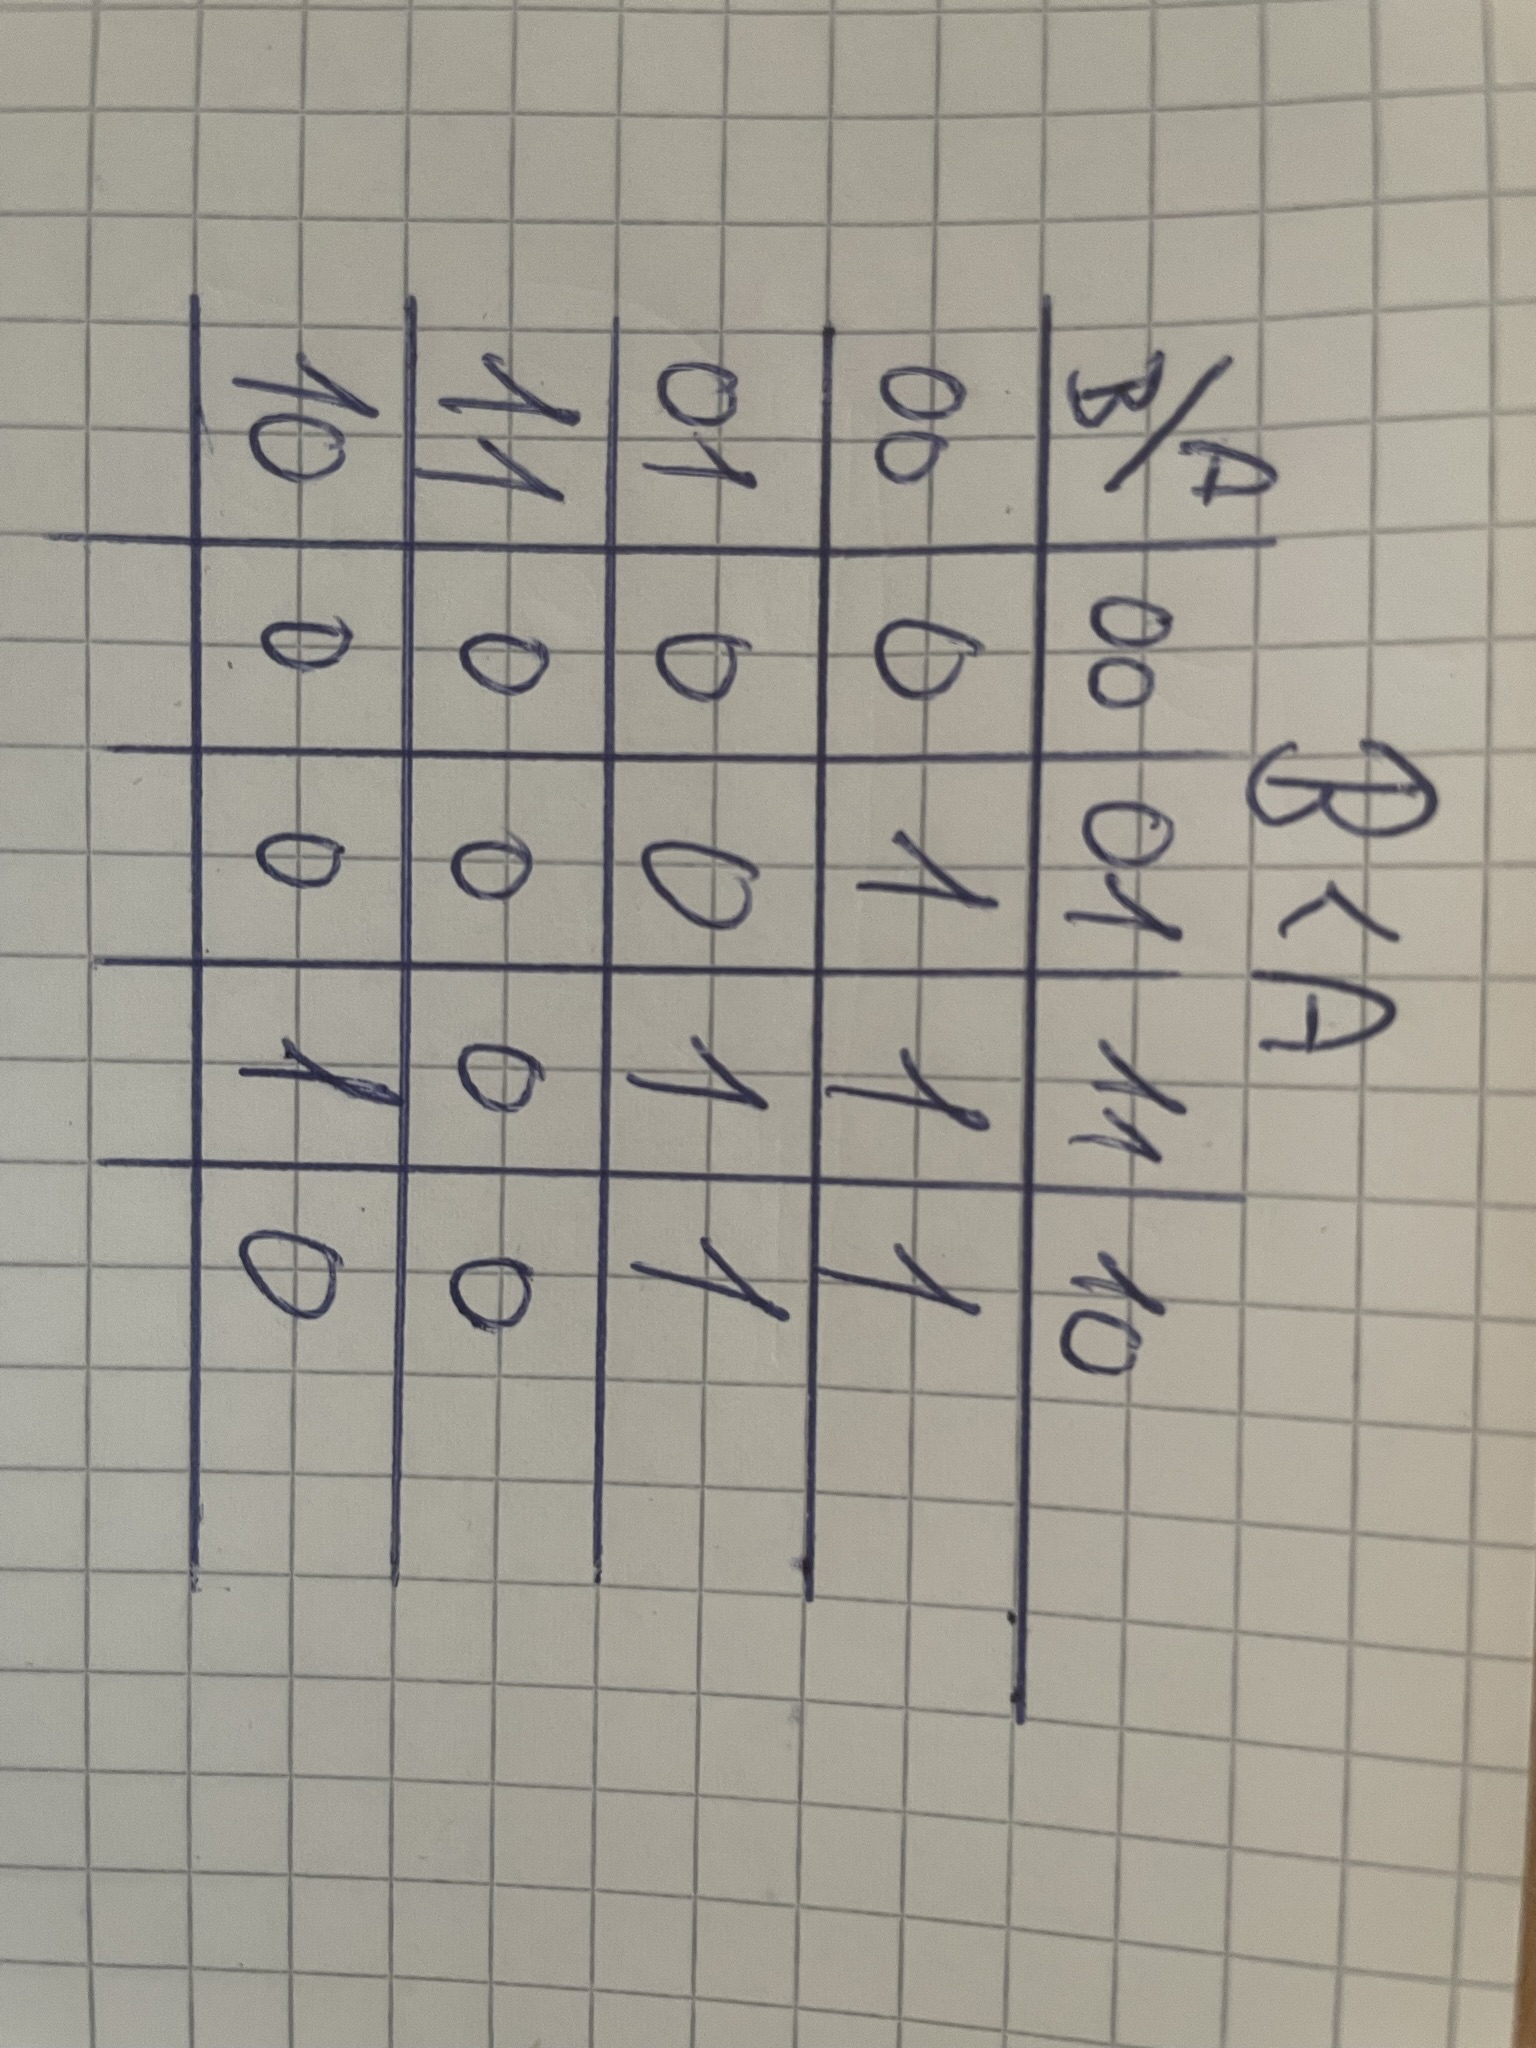 B < A
B \ A 00 01 11 10
00 0 1 1 1
01 0 0 1 1
11 0 0 0 0
10 0 0 1 0